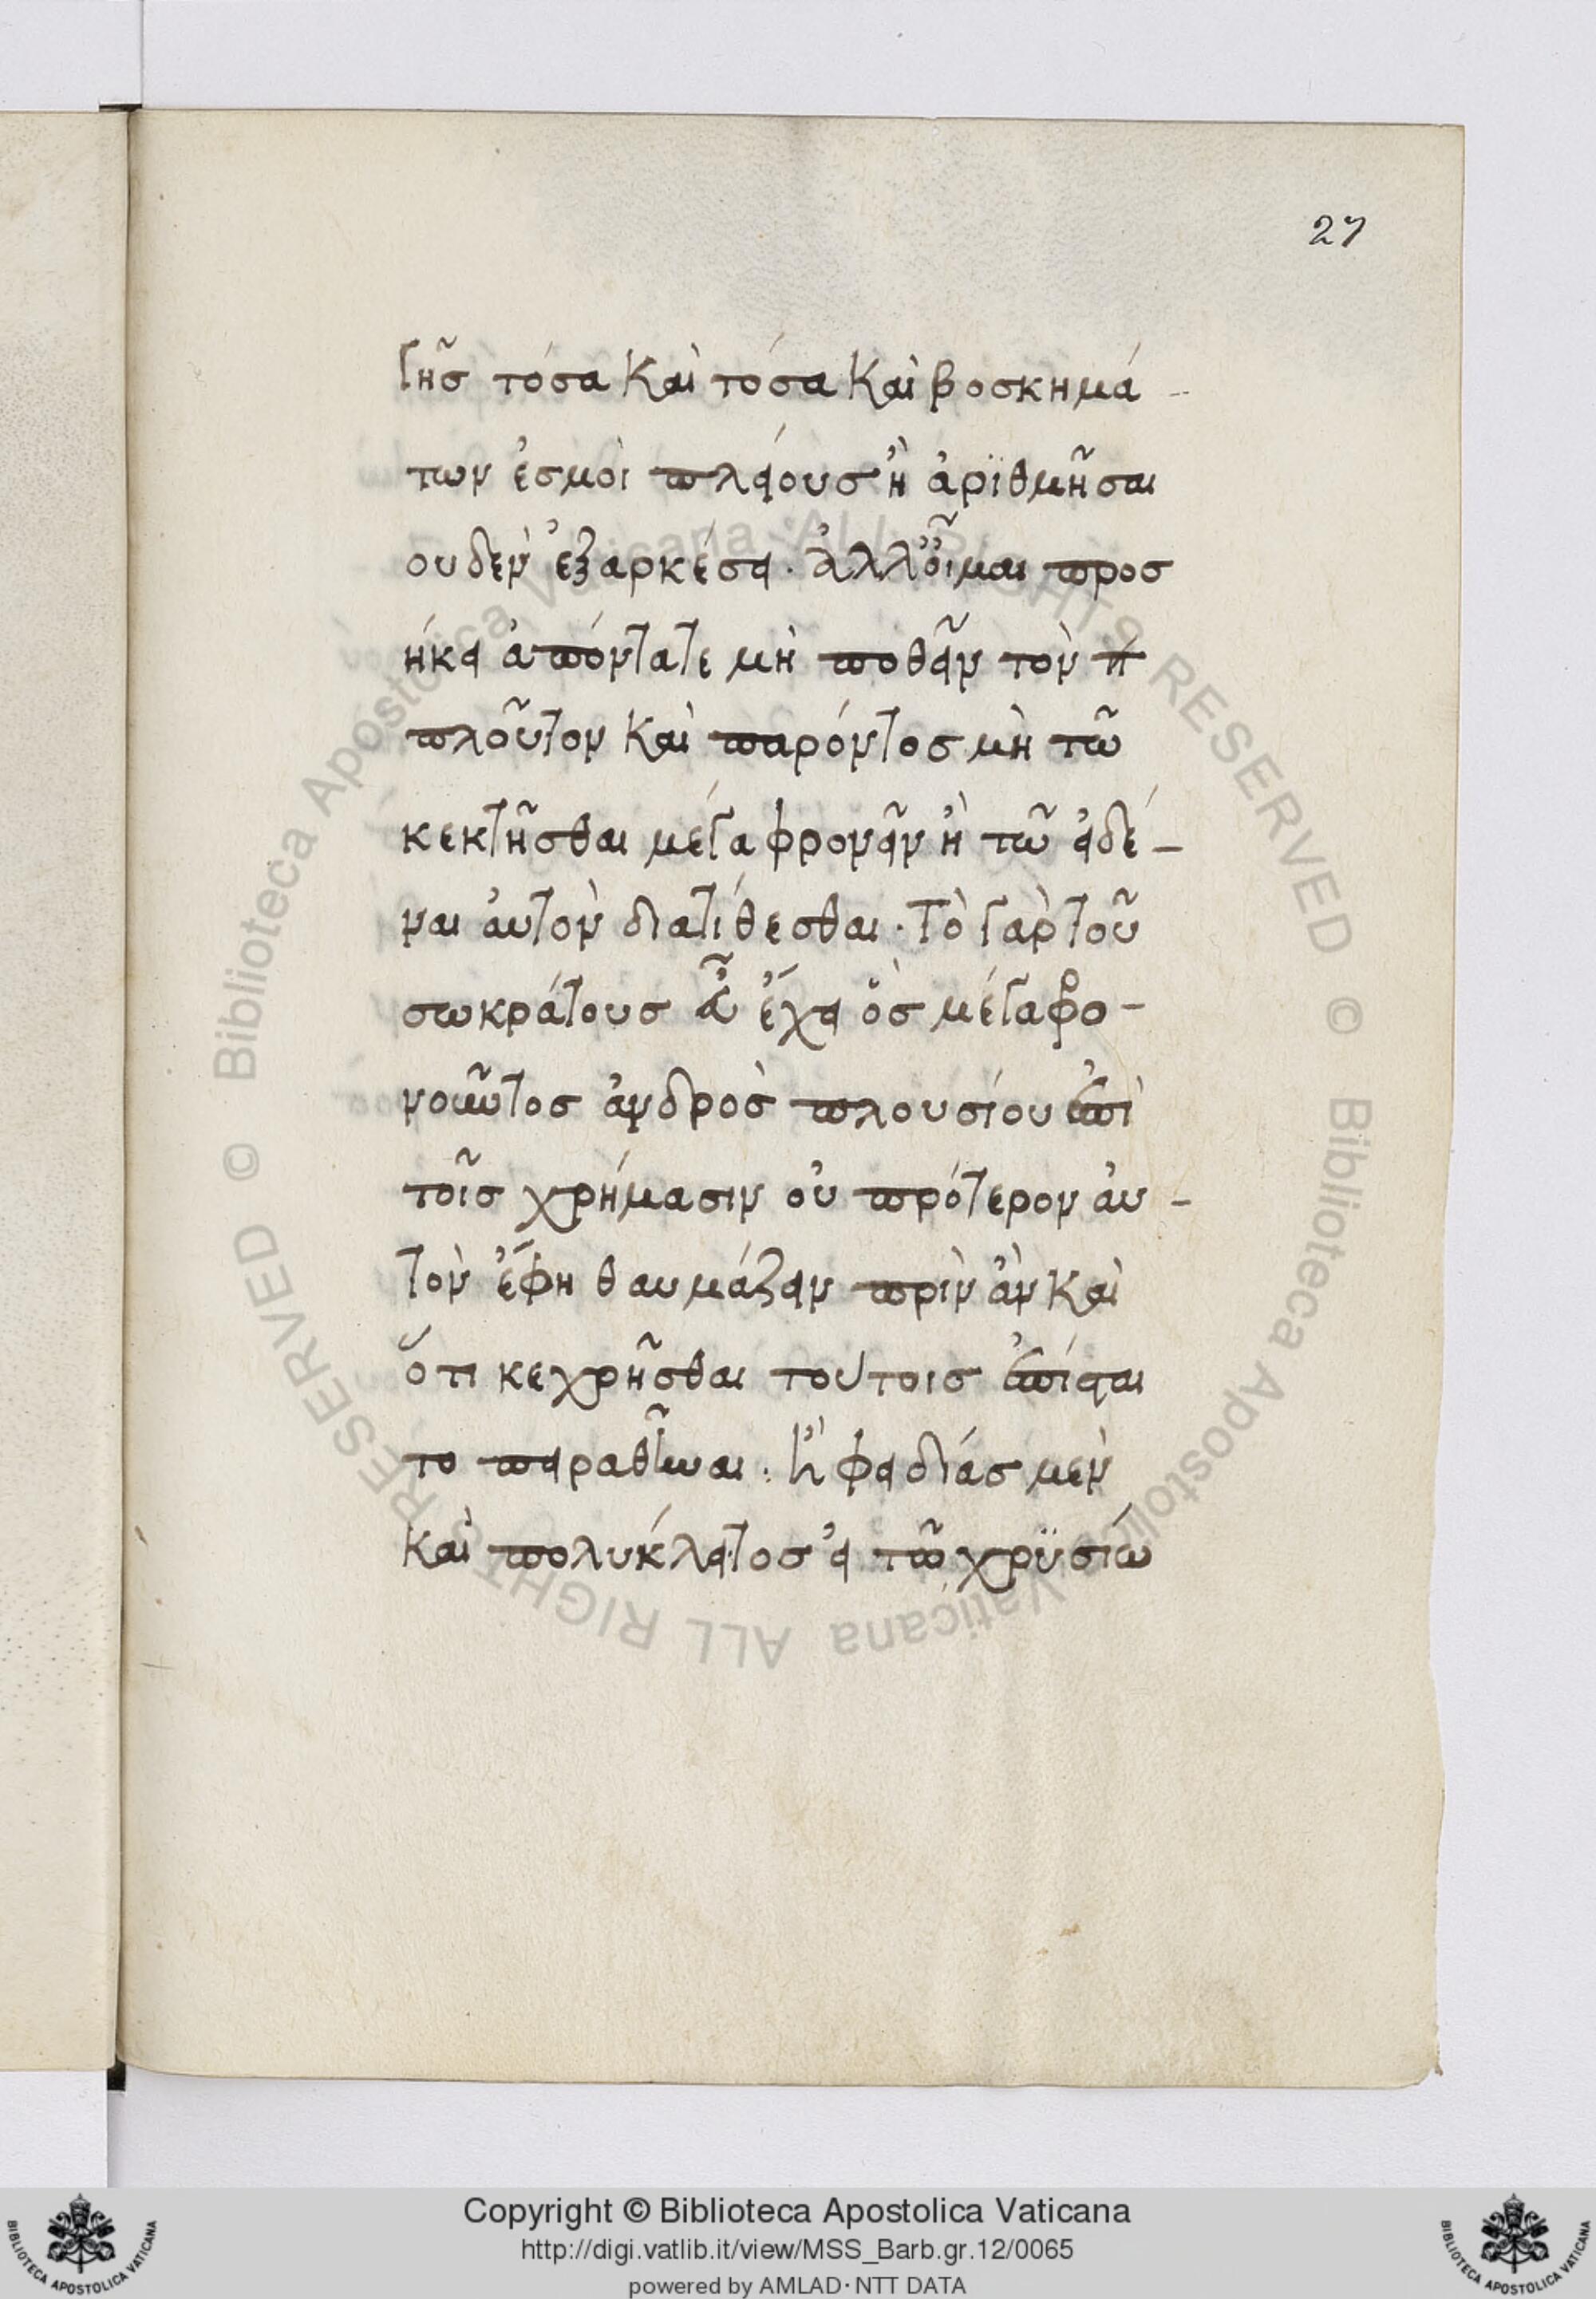 27
γῆς τόσα καὶ τόσα καὶ βοσκημά-
των ἐσμοὶ πλείους ἢ ἀριθμῆσαι
ουδὲν ἐξαρκέσει. ἀλλ' οἶμαι προς
ήκει ἀπόντατε μὴ ποθεῖν τὸν
πλοῦτον καὶ παρόντος μὴ τῶ
κεκτῆσθαι μέγα φρονεῖν ἢ τῶ εἰδέ-
ναι ἀυτὸν διατίθεσθαι. Τὸ γὰρ τοῦ
σωκράτους εὖ ἔχει ὃς μέγαφρο-
νοῦντος ἀνδρὸς πλουσίου ἐπὶ
τοῖς χρήμασιν οὐ πρότερον ἀυ-
τὸν ἔφη θαυμάζειν πρὶν ἂν καὶ
ὅτι κεχρῆσθαι τούτοις ἐπίσται
το πειραθῆναι. Ἢ φειδίας μὲν
καὶ πολυκλειτος εἰ τῶ χρϋσίω
Copyright © Biblioteca Apostolica Vaticana
http://digi.vatlib.it/view/MSS_Barb.gr.12/0065
powered by AMLAD·NTT DATA
BIBLIOTECA APOSTOLICA VATICANA
BIBLIOTECA APOSTOLICA VATICANA
© Biblioteca Apostolica Vaticana ALL RIGHTS RESERVED © Biblioteca Apostolica Vaticana ALL RIGHTS RESERVED